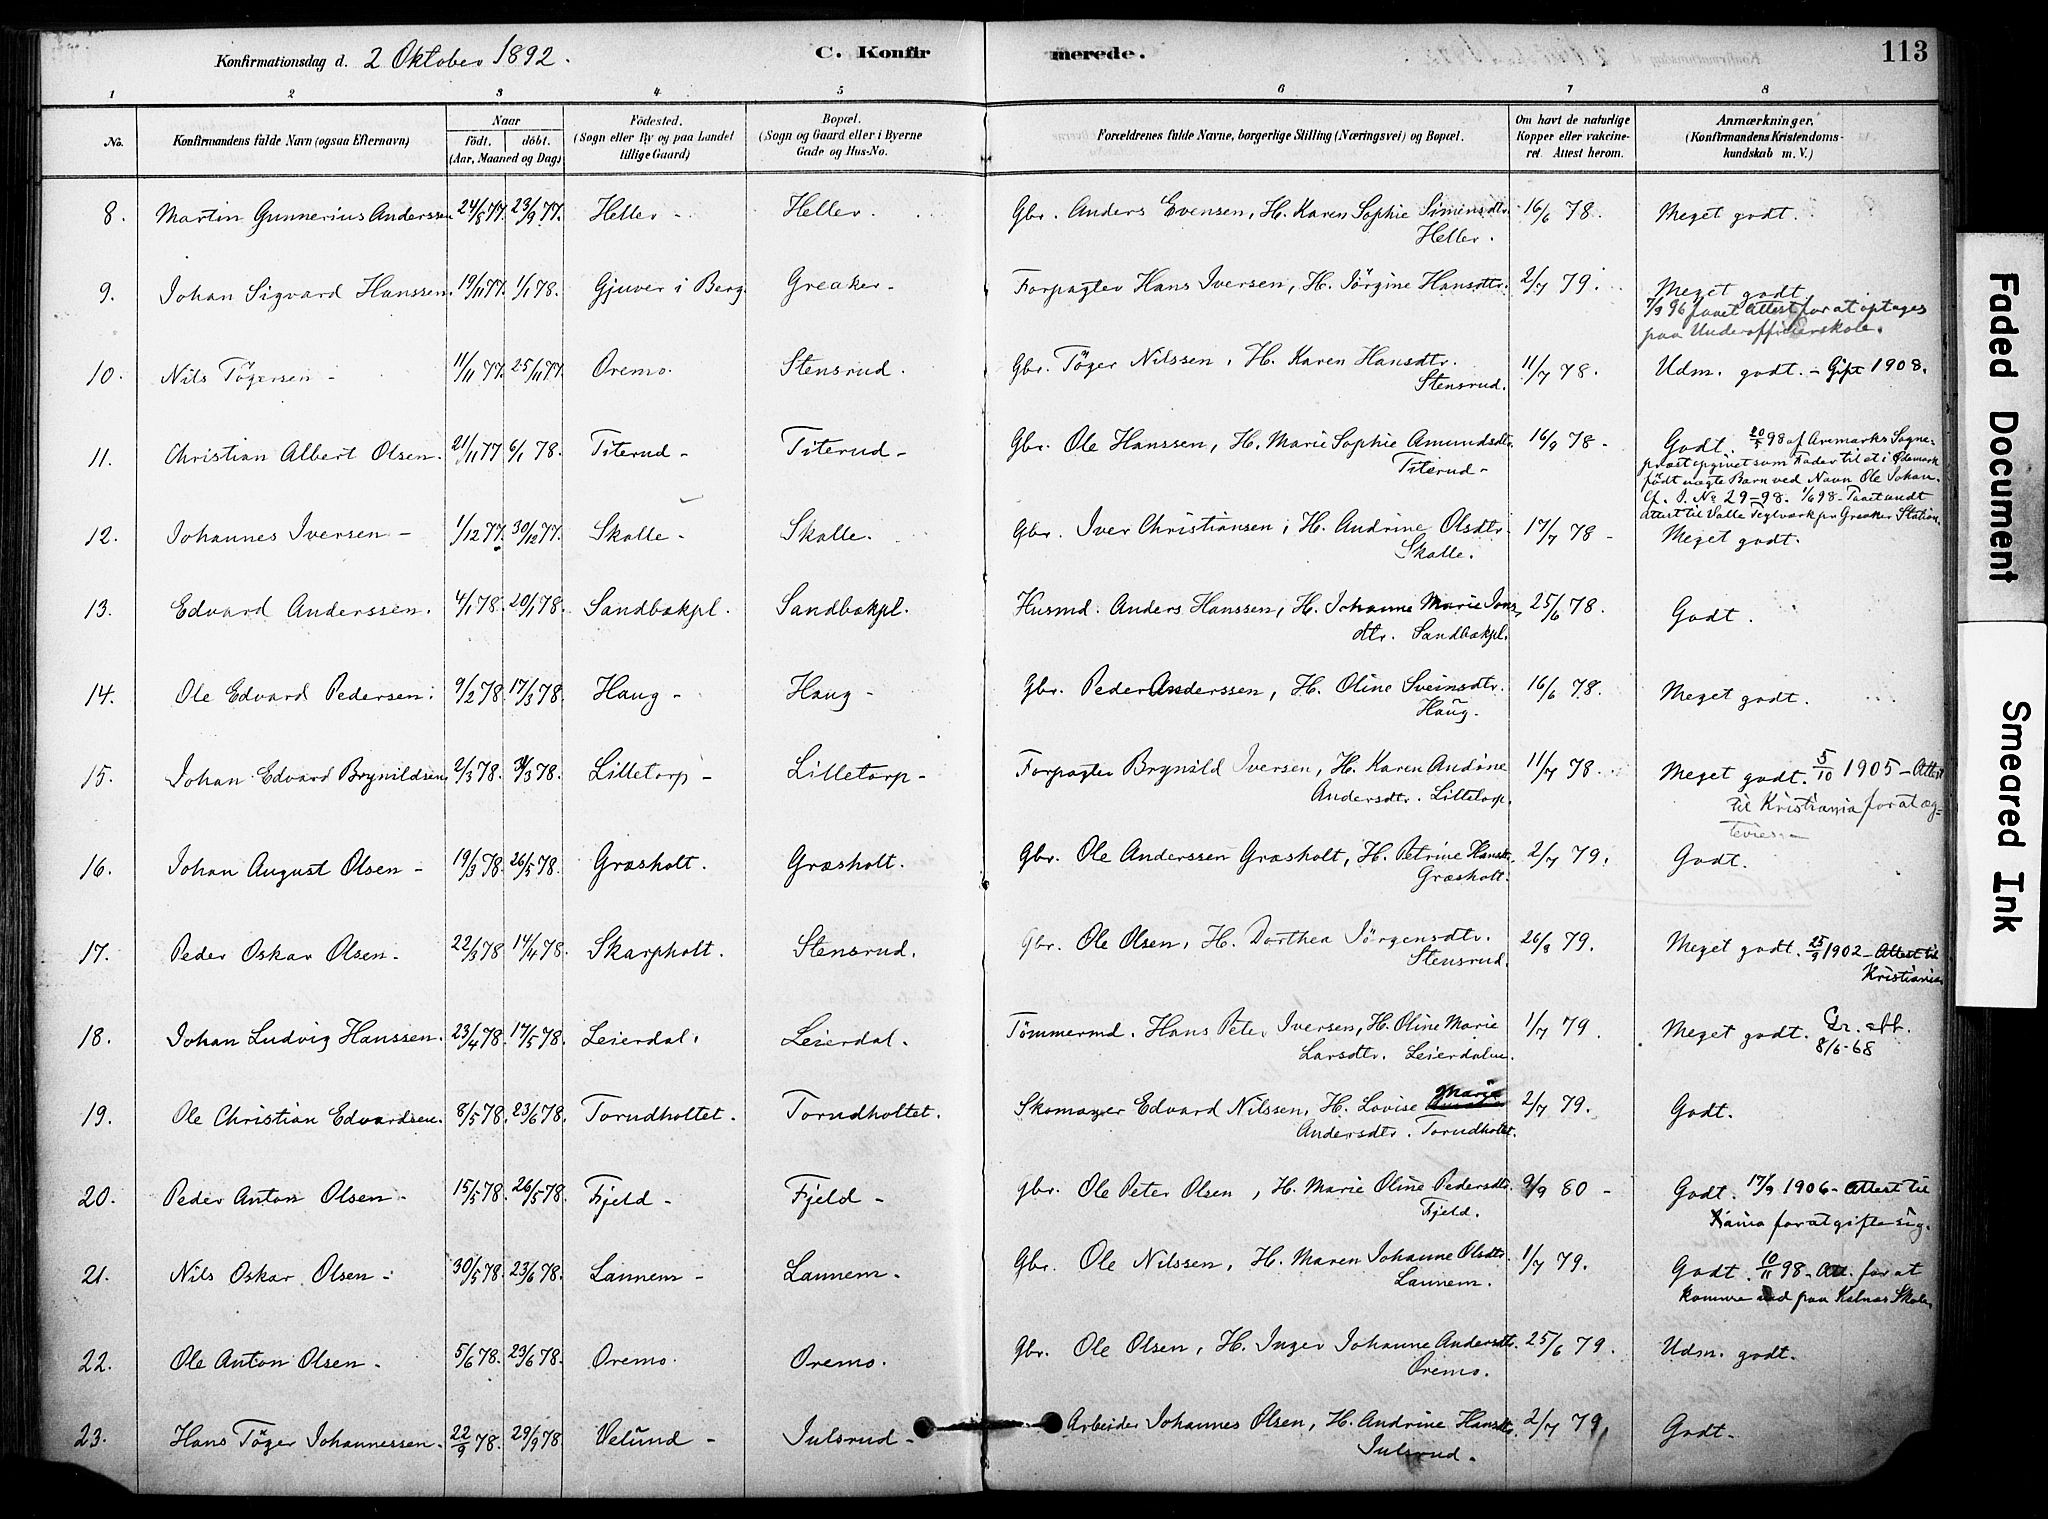 Konfirmationsdag d. 2 Oktober 1892.
C. Konfirmerede.
113
1 2 3 4 5 6 7 8
No.
Konfirmandens fulde Navn (ogsaa Efternavn)
Naar
födt. döbt.
(Aar, Maaned og Dag)
Födested.
(Sogn eller By og paa Landet
tillige Gaard)
Bopæl.
(Sogn og Gaard eller i Byerne
Gade og Hus-No.
Forældrenes fulde Navne, borgerlige Stilling (Næringsvei) og Bopæl.
Om havt de naturlige
Kopper eller vakcine-
ret. Attest herom.
Anmærkninger,
(Konfirmandens Kristendoms-
kundskab m. V.)
8. Martin Gunnerius Anderssen 24/8 77. 23/9 77. Heller - Heller. Gbr. Anders Evensen, H. Karen Sophie Simensdtr. 16/6 78. Meget godt.
Heller.
9. Johan Sigvard Hanssen. 19/11 77. 1/1 78. Gjuver i Berg Greaker- Forpagter Hans Iversen, H. Jörgine Hansdtr. 2/7 79. Meget godt
7/9 96 faaet Attest for at optages
paa Underofficierskole.
10. Nils Tögersen - 11/11 77. 25/11 77. Oremo. Stensrud. Gbr. Töger Nilssen, H. Karen Hansdtr. 11/7 78. Udm. godt. - Gift 1908.
Stensrud.
11. Christian Albert Olsen. 21/11 77 6/1 78. Titerud- Titerud- Gbr. Ole Hanssen, H. Marie Sophie Amundsdtr. 16/9 78- Godt. 20/5 98 af Aremarks Sogne-
Titerud-
præst opgivet som Fader til et i Ødemark
födt uægte Barn ved Navn Ole Johan.
Cf. J. No 29-98. 1/6 98- Paategnet
Attest til Valle Teglværk pr Greaker Station
12. Johannes Iversen - 1/12 77. 30/12 77. Skolle. Skolle. Gbr. Iver Christiansen, H. Andrine Olsdtr. 17/7 78- Meget godt.
Skolle.
13. Edvard Anderssen. 4/1 78. 20/1 78. Sandbækpl. Sandbækpl. Husmd. Anders Hanssen, H. Johanne Marie Jons 25/6 78. Godt.
dtr. Sandbækpl.
14. Ole Edvard Pedersen. 9/2 78. 17/3 78. Haug- Haug- Gbr. Peder Anderssen, H. Oline Sveinsdtr. 16/6 78. Meget godt.
Haug.
15. Johan Edvard Brynildsen 2/3 78. 31/3 78. Lilletorp- Lilletorp- Forpagter Brynild Iversen, H. Karen Andine 11/7 78. Meget godt. 5/10 1905 - Attest
Andersdtr. Lilletorp.
til Kristiania for at æg-
tevies.-
16. Johan August Olsen- 19/3 78. 26/5 78. Græsholt. Græsholt. Gbr. Ole Anderssen Græsholt, H. Petrine Hansdtr. 2/7 79. Godt.
Græsholt.
17. Peder Oskar Olsen- 22/3 78. 14/4 78. Skarpholt. Stensrud. Gbr. Ole Olsen, H. Dorthea Jörgensdtr. 26/8 79. Meget godt. 25/9 1902- Attest til
Stensrud.
Kristiania
18. Johan Ludvig Hanssen. 23/4 78. 17/5 78. Leierdal. Leierdal. Tömmermd. Hans Peter Iversen, H. Oline Marie 1/7 79. Meget godt. Gr. att.
Larsdtr. Leierdalen.
8/5-68
19. Ole Christian Edvardsen. 8/5 78. 23/6 78. Torudholtet. Torudholtet. Skomager Edvard Nilssen, H. Lovise Marie 2/7 79. Godt.
Andersdtr. Torudholtet.
20. Peder Anton Olsen- 15/5 78. 26/5 78. Fjeld- Fjeld- Gbr. Ole Peter Olsen, H. Marie Oline Pedersdtr. 9/9 80- Godt. 17/9 1906- Attest til
Fjeld.
Kania for at gifte sig.
21. Nils Oskar Olsen- 30/5 78. 23/6 78. Lannem- Lannem- Gbr. Ole Nilssen, H. Maren Johanne Olsdtr. 1/7 79. Godt. 10/11 98- Att. for at
Lannem.
komme ind paa Kalnæs Skole
22. Ole Anton Olsen- 5/6 78. 23/6 78. Oremo. Oremo. Gbr. Ole Olsen, H. Inger Johanne Andersdtr. 25/6 79. Udm. godt.
Oremo.
23. Hans Töger Johannessen. 22/9 78. 29/9 78 Velund- Julsrud- Arbeider Johannes Olsen, H. Andrine Hansdtr. 2/7 79. Godt.
Julsrud.
Faded Document
Smeared Ink